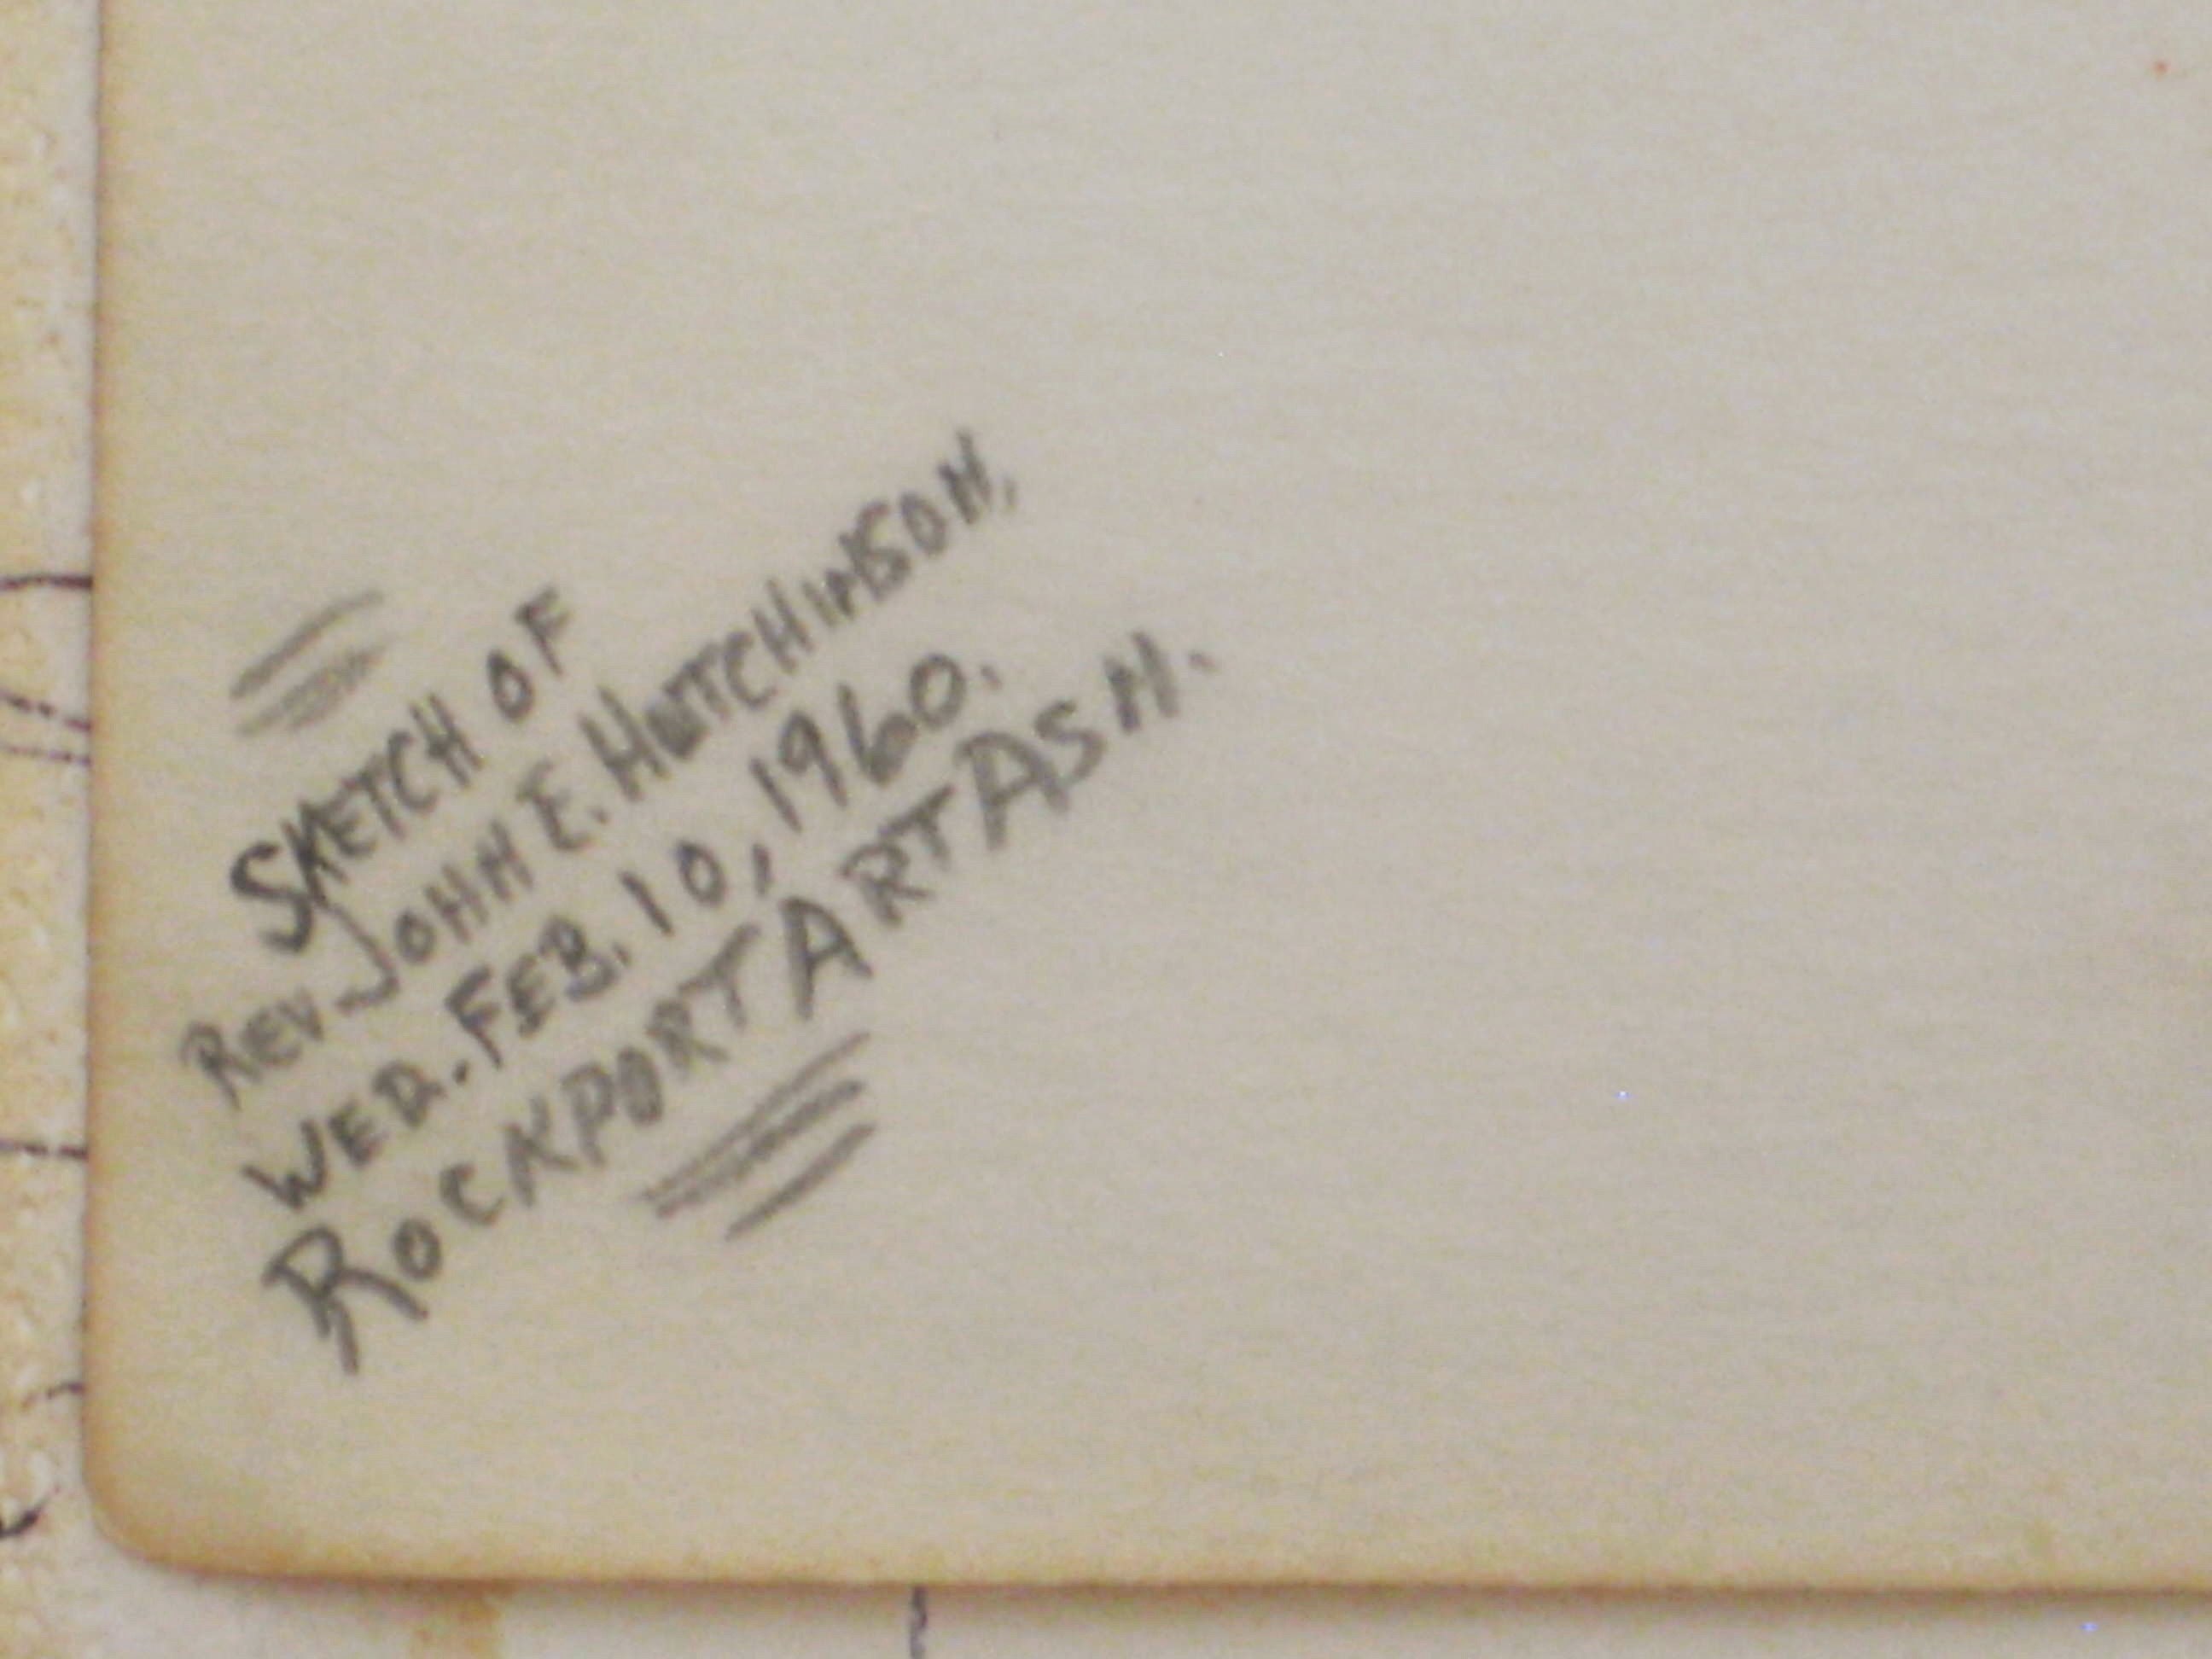 SKETCH OF
REV. JOHN E. HUTCHINSON,
WED. FEB. 10, 1960.
ROCKPORT ART ASN.